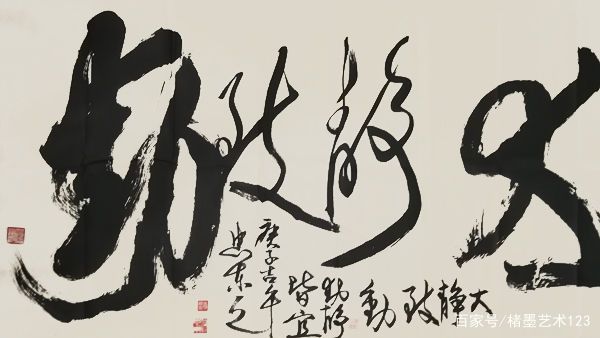 大静致动
大静致動
動静
皆宜
庚子吉年
百家号/楮墨艺术123